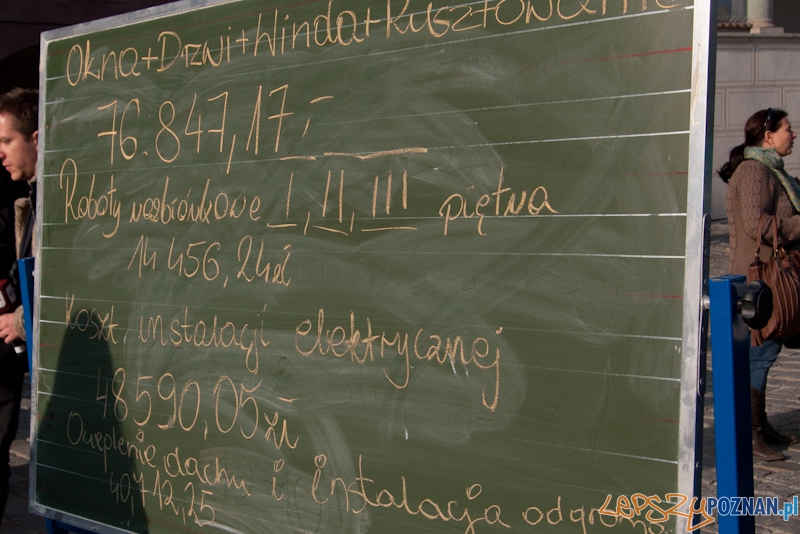 Okna+Drzwi+Winda+Kusztowanie
76.847,17,-
Roboty rozbiórkowe I, II, III piętna
14 456,24zł
Koszt instalacji elektrycznej
48590,05 zł
Ocieplenie dachu i instalacja odgrom
40,712,25
LEPSZYPOZNAN.pl